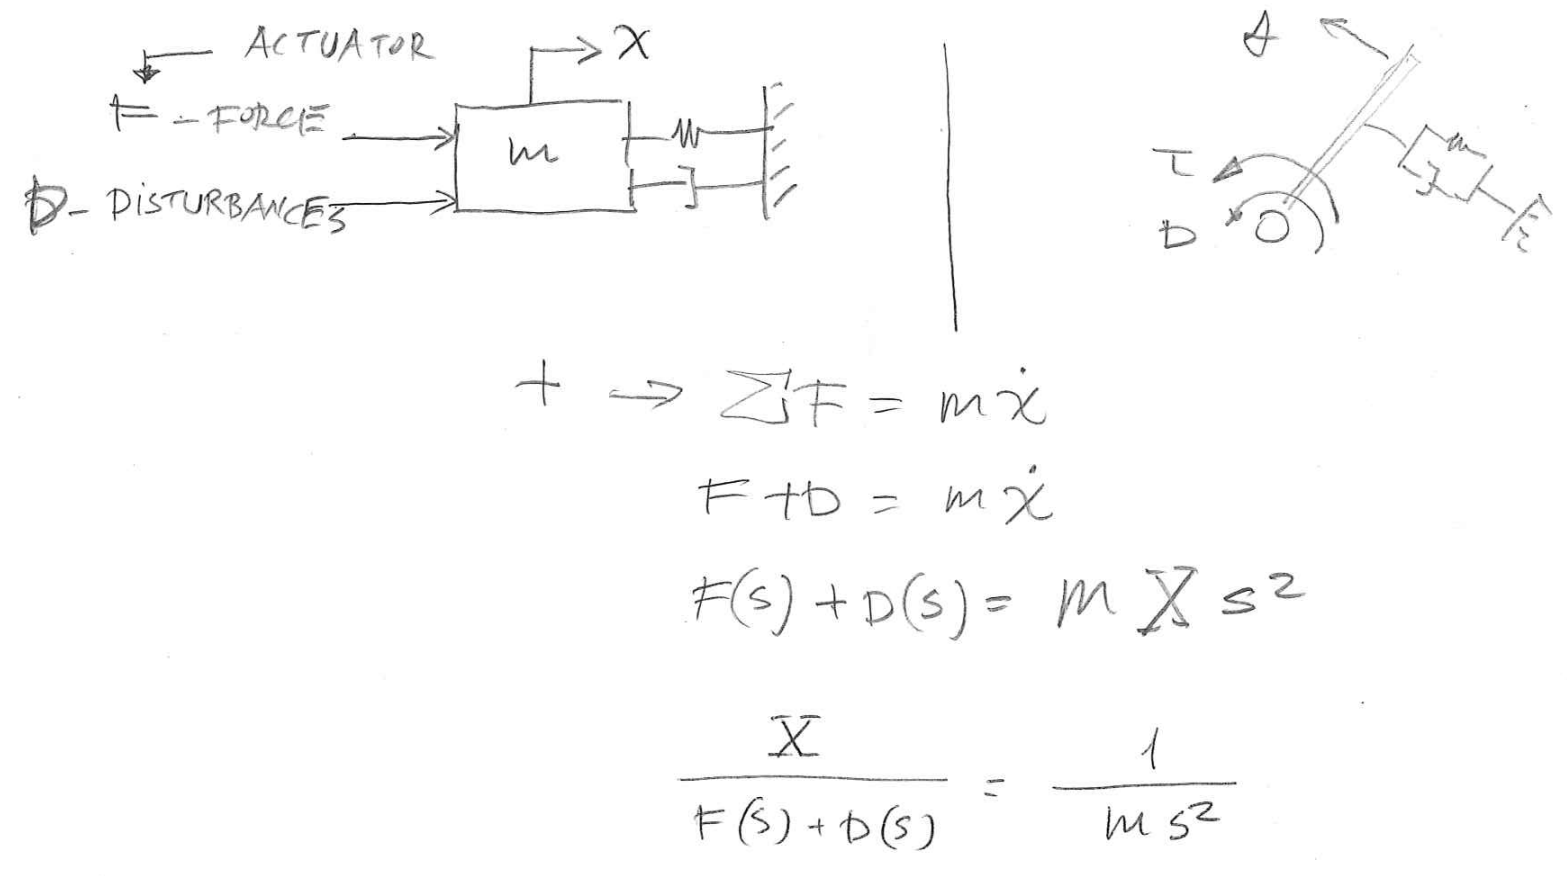 ACTUATOR
X
F - FORCE
m
D - DiSTURBANCES
τ
D
+ → ΣF = mẋ
F + D = mẋ
F(s) + D(s) = m X s²
X
F(s) + D(s)
=
1
m s²